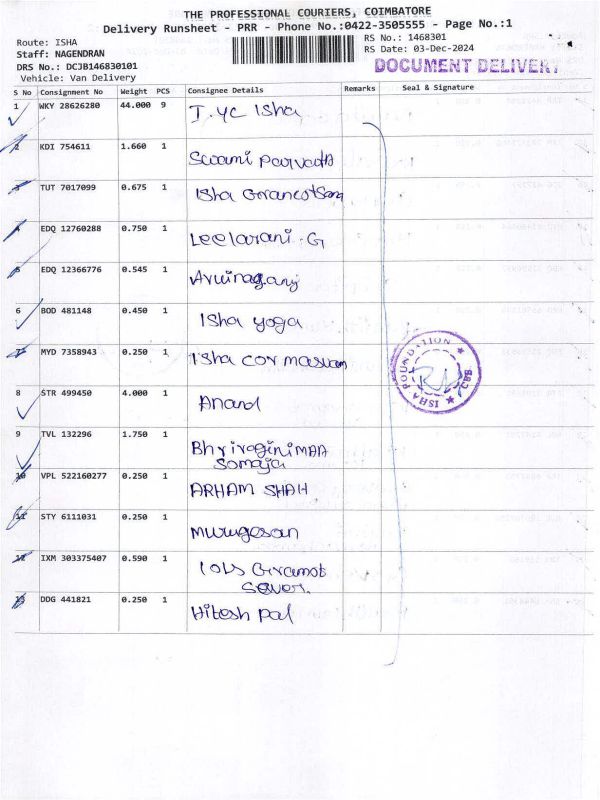 THE PROFESSIONAL COURIERS, COIMBATORE
Delivery Runsheet - PRR - Phone No.:0422-3505555 - Page No.:1
Route: ISHA
RS No.: 1468301
Staff: NAGENDRAN
RS Date: 03-Dec-2024
DRS No.: DCJB146830101
DOCUMENT DELIVERY
Vehicle: Van Delivery
S No Consignment No Weight PCS Consignee Details Remarks Seal & Signature
1 WKY 28626280 44.000 9 I.YC Isha
2 KDI 754611 1.660 1 Swami Parvada
3 TUT 7017099 0.675 1 Isha
4 EDQ 12760288 0.750 1 Leelarani.G
5 EDQ 12366776 0.545 1
6 BOD 481148 0.450 1 Isha yoga
7 MYD 7358943 0.250 1 Isha
8 STR 499450 4.000 1 Anand
9 TVL 132296 1.750 1 BhriraginiMAA
Somaja
10 VPL 522160277 0.250 1 ARHAM SHAH
11 STY 6111031 0.250 1 Murugesan
12 IXM 303375407 0.590 1
13 DDG 441821 0.250 1 Hitesh pal
ISHA FOUNDATION ★ CBE ★